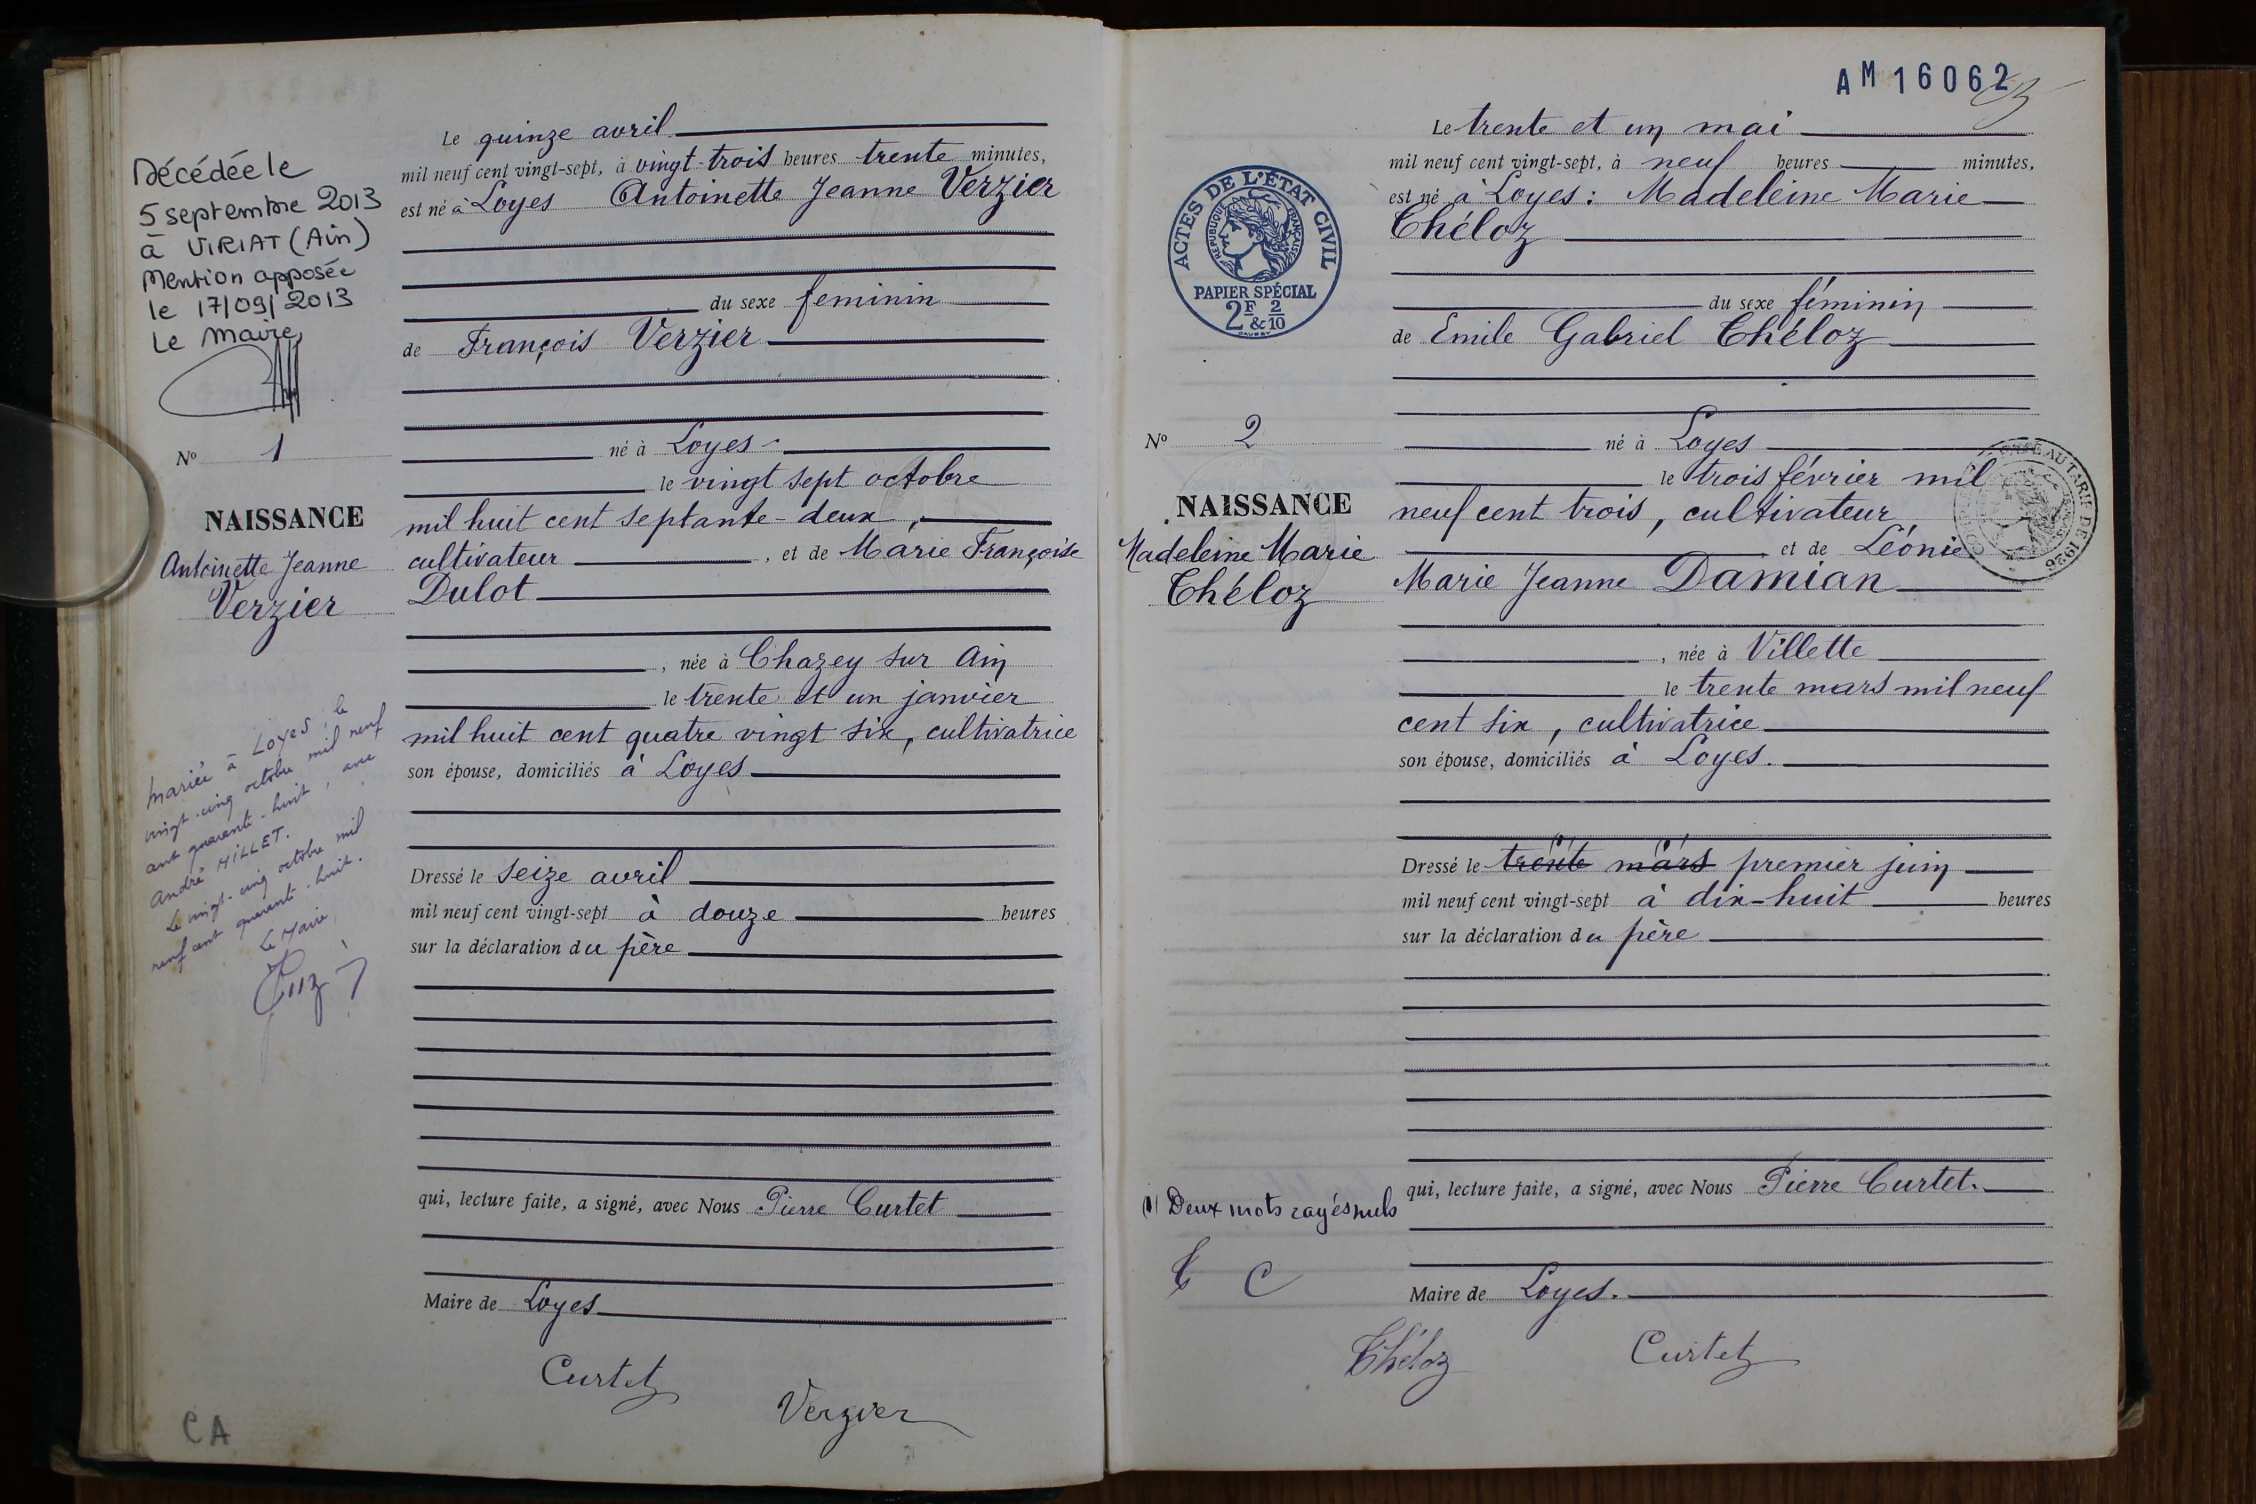 Décédée le
5 septembre 2013
à VIRIAT (Ain)
Mention apposée
le 17/09/2013
Le Maire,
N° 1
NAISSANCE
Antoinette Jeanne
Verzier
Mariée à Loyes, le
vingt-cinq octobre mil neuf
cent quarante-huit, avec
André MILLET.
Le vingt-cinq octobre mil
neuf cent quarante-huit.
Le Maire
CA
Le quinze avril
mil neuf cent vingt-sept, à vingt-trois heures trente minutes,
est né à Loyes Antoinette Jeanne Verzier
du sexe feminin
de François Verzier
né à Loyes
le vingt sept octobre
mil huit cent septante-deux,
cultivateur, et de Marie Françoise
Dulot
, née à Chazey sur Ain
le trente et un janvier
mil huit cent quatre vingt six, cultivatrice
son épouse, domiciliés à Loyes
Dressé le seize avril
mil neuf cent vingt-sept à douze heures
sur la déclaration du père
qui, lecture faite, a signé, avec Nous Pierre Curtet
Maire de Loyes
Curtet
Verzier
AM 16062
ACTES DE L'ÉTAT CIVIL
RÉPUBLIQUE FRANÇAISE
PAPIER SPÉCIAL
2F & 2/10
N° 2
NAISSANCE
Madeleine Marie
Chéloz
(1) Deux mots rayés nuls
C C
Le trente et un mai
mil neuf cent vingt-sept, à neuf heures minutes,
est né à Loyes : Madeleine Marie
Chéloz
du sexe féminin
de Emile Gabriel Chéloz
né à Loyes
le trois février mil
neuf cent trois, cultivateur
et de Léonie
Marie Jeanne Damian
, née à Villette
le trente mars mil neuf
cent six, cultivatrice
son épouse, domiciliés à Loyes.
Dressé le trente mars premier juin
mil neuf cent vingt-sept à dix-huit heures
sur la déclaration du père
qui, lecture faite, a signé, avec Nous Pierre Curtet.
Maire de Loyes.
Chéloz
Curtet
AU TARIF DE 1926